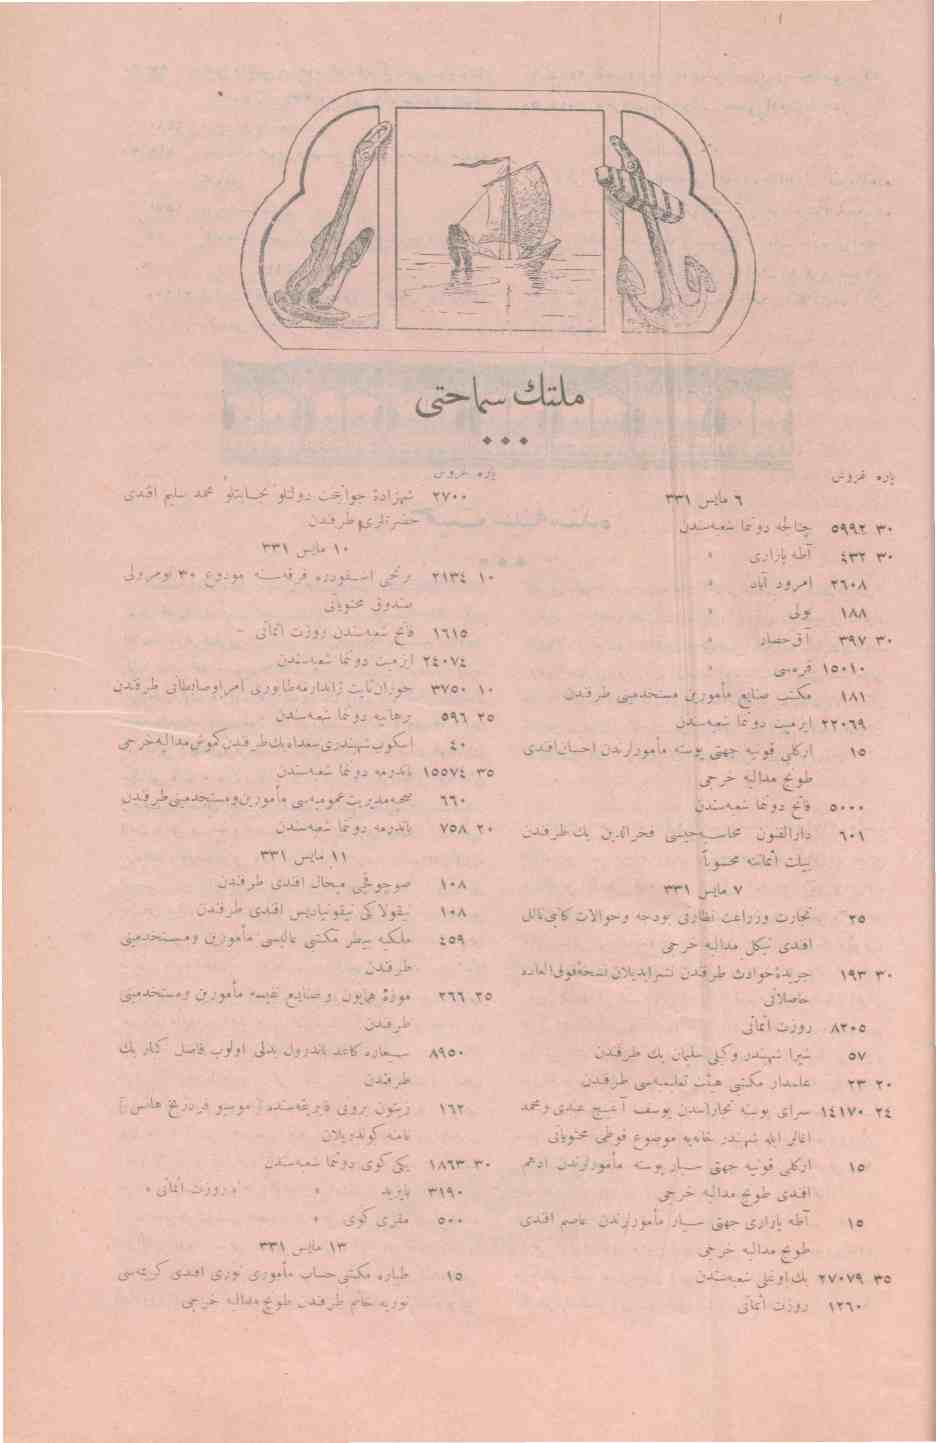 ملتك سماحتی
پاره غروش
٦ مايس ٣٣١
٣٠ ٥٩٩٢ چتالجه دوننما شعبه‌سندن
٣٠ ٤٣٢ آطه پازاری »
٢٦٠٨ امرود آباد »
١٨٨ بولی »
٣٠ ٣٩٧ آق‌حصار »
١٥٠١٠ قره‌سی »
١٨١ مكتب صنايع مأمورين مستخدمينی طرفندن
٢٢٠٦٩ ازميت دوننما شعبه‌سندن
١٥ اركلی قونيه جهتی پوسته مأمورلرندن احسان افندی
طونج مداليه خرجی
٥٠٠٠ فاتح دوننما شعبه‌سندن
٦٠١ دارالفنون محاسبه‌جيسی فخرالدين بك طرفندن
بيلت اثماننه محسوباً
٧ مايس ٣٣١
٢٥ تجارت وزراعت نظارتی بودجه وحوالات كاتبی نائل
افندی نيكل مداليه خرجی
٣٠ ١٩٣ جريدۀ حوادث طرفندن نشر ايديلان نسخۀ فوق‌العاده
حاصلاتی
٨٢٠٥ روزت اثمانی
٥٧ شيرا شهبندر وكيلی سليمان بك طرفندن
٢٠ ٢٣ علمدار مكتبی هيئت تعليميه‌سی طرفندن
٢٤ ١٤١٧٠ سرای بوسنه تجارلسندن يوسف آغيچ عبدی ومحمد
اغالر ايله شهبندر خانه‌يه موضوع قوطی محتوياتی
١٥ اركلی قونيه جهتی سيار پوسته مأمورلرندن ادهم
افندی طونج مداليه خرجی
١٥ آطه پازاری جهتی سيار مأمورلرندن عاصم افندی
طونج مداليه خرجی
٣٥ ٢٧٠٧٩ بك اوغلی شعبه‌سندن
١٢٦٠ روزت اثمانی
پاره غروش
٢٧٠٠ شهزادۀ جوانبخت دولتلو نجابتلو محمد سليم افندی
حضرتلری طرفندن
١٠ مايس ٣٣١
١٠ ٢١٣٤ برنجی اسفودره فرقه‌سنه مودوع ٣٠ نومرولی
صندوق محتوياتی
١٦١٥ فاتح شعبه‌سندن روزت اثمانی
٢٤٠٧٤ ازميت دوننما شعبه‌سندن
١٠ ٣٧٥٠ حوران ثابت ژاندارمه طابوری امرا وضابطانی طرفندن
٢٥ ٥٩٦ برهانيه دوننما شعبه‌سندن
٤٠ اسكوب شهبندری سعداد بك طرفندن كموش مداليه خرجی
٣٥ ١٥٥٧٤ باندرمه دوننما شعبه‌سندن
٦٦٠ صحيه مديريت عموميه‌سی مأمورين ومستخدمينی طرفندن
٢٠ ٧٥٨ باندرمه دوننما شعبه‌سندن
١١ مايس ٣٣١
١٠٨ صوچوقجی ميخال افندی طرفندن
١٠٨ نيقولاكی نيقونياديس افندی طرفندن
٤٥٩ ملكيه بيطر مكتبی عاليسی مأمورين ومستخدمينی
طرفندن
٢٥ ٢٦٦ موزۀ همايون وصنايع نفيسه مأمورين ومستخدمينی
طرفندن
٨٩٥٠ سيغاره كاغد باندرول بدلی اولوب فاضل كنار بك
طرفندن
١٦٢ زيتون برونی فابريقه‌سنده [موسيو فردريخ هانس]
نامنه كوندريلان
٣٠ ١٨٦٣ يكی كوی دوننما شعبه‌سندن
٣١٩٠ بايزيد » « روزت اثمانی »
٥٠٠ مقری كوی »
١٣ مايس ٣٣١
١٥ طباره مكتبی حساب مأموری نوری افندی كريمه‌سی
نوريه خانم طرفندن طونج مداليه خرجی